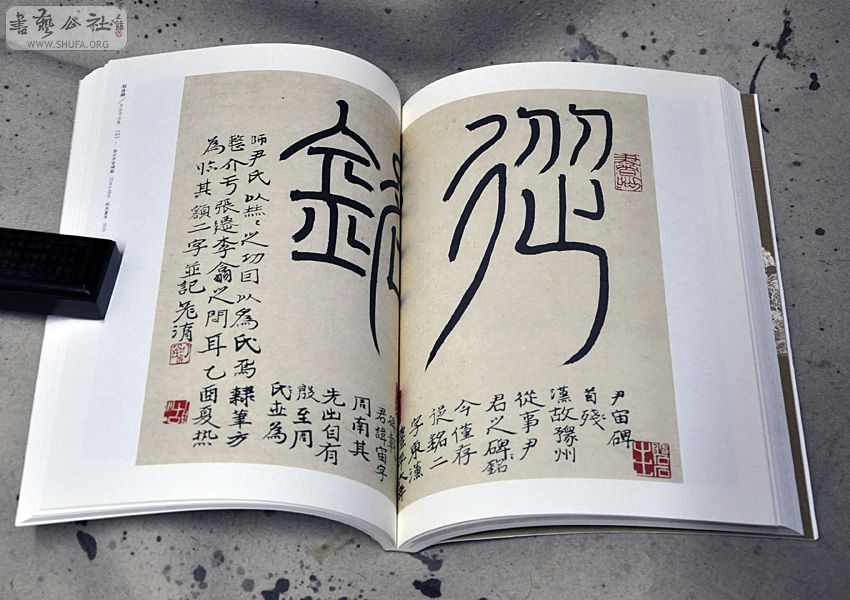 書藝公社
WWW.SHUFA.ORG
從銘
尹宙碑
首殘
漢故豫州
從事尹
君之碑銘
今僅存
從銘二
字東漢
君諱宙字
周南其
先出自有
殷至周
氏世為
師尹氏以赫〻之功因以為氏焉隸筆方
整介于張遷李翕之間耳乙酉夏热
為臨其額二字並記